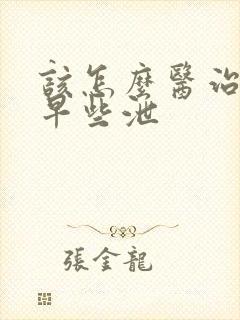 該怎麼醫治
早些泄
張金龍